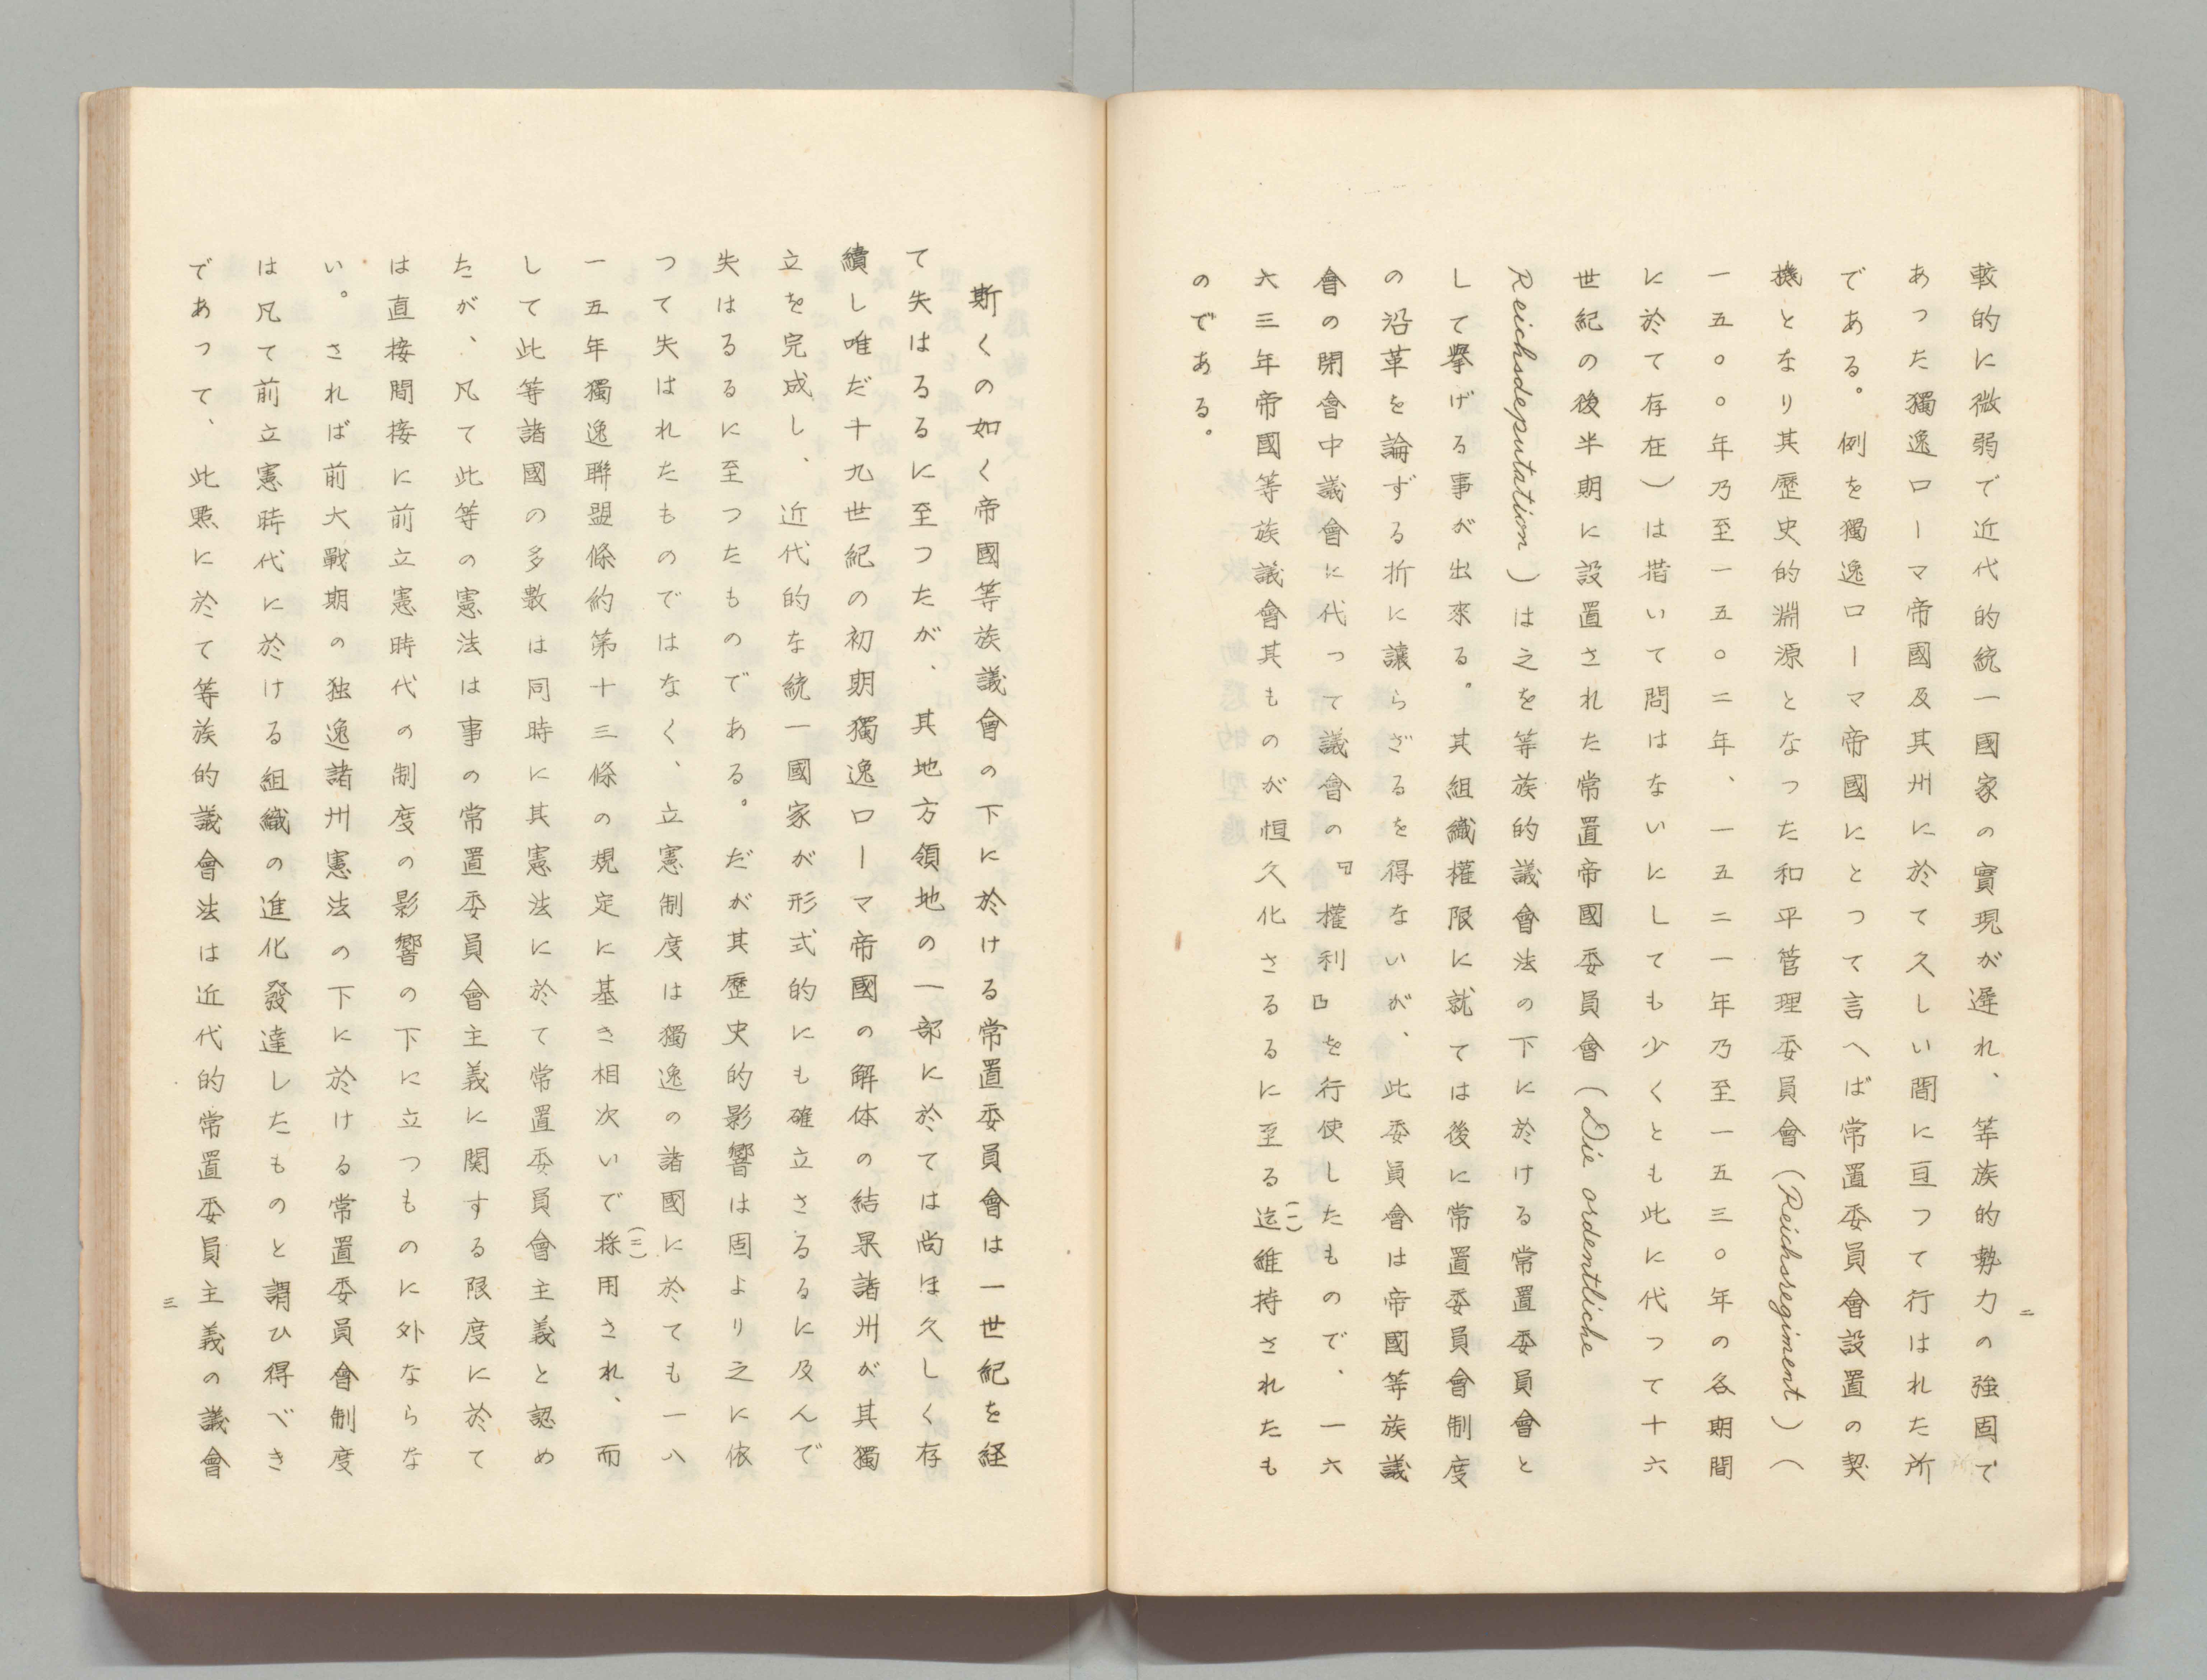 較的に微弱で近代的統一國家の實現が遲れ、等族的勢力の強固で
あつた獨逸ローマ帝國及其州に於て久しい間に亘つて行はれた所
である。例を獨逸ローマ帝國にとつて言へば常置委員會設置の契
機となり其歷史的淵源となつた和平管理委員會（Reichsregiment）（
一五〇〇年乃至一五〇二年、一五二一年乃至一五三〇年の各期間
に於て存在）は措いて問はないにしても少くとも此に代つて十六
世紀の後半期に設置された常置帝國委員會（Die ordentliche
Reichsdeputation）は之を等族的議會法の下に於ける常置委員會と
して擧げる事が出來る。其組織權限に就ては後に常置委員會制度
の沿革を論ずる折に讓らざるを得ないが、此委員會は帝國等族議
會の閉會中議會に代つて議會の『權利』を行使したもので、一六
六三年帝國等族議會其ものが恒久化さるるに至る迄(一)維持されたも
のである。
二
斯くの如く帝國等族議會の下に於ける常置委員會は一世紀を経
て失はるるに至つたが、其地方領地の一部に於ては尚ほ久しく存
續し唯だ十九世紀の初期獨逸ローマ帝國の解体の結果諸州が其獨
立を完成し、近代的な統一國家が形式的にも確立さるるに及んで
失はるるに至つたものである。だが其歷史的影響は固より之に依
つて失はれたものではなく、立憲制度は獨逸の諸國に於ても一八
一五年獨逸聯盟條約第十三條の規定に基き相次いで採(二)用され、而
して此等諸國の多數は同時に其憲法に於て常置委員會主義と認め
たが、凡て此等の憲法は事の常置委員會主義に関する限度に於て
は直接間接に前立憲時代の制度の影響の下に立つものに外ならな
い。されば前大戰期の独逸諸州憲法の下に於ける常置委員會制度
は凡て前立憲時代に於ける組織の進化發達したものと謂ひ得べき
であつて、此點に於て等族的議會法は近代的常置委員主義の議會
三